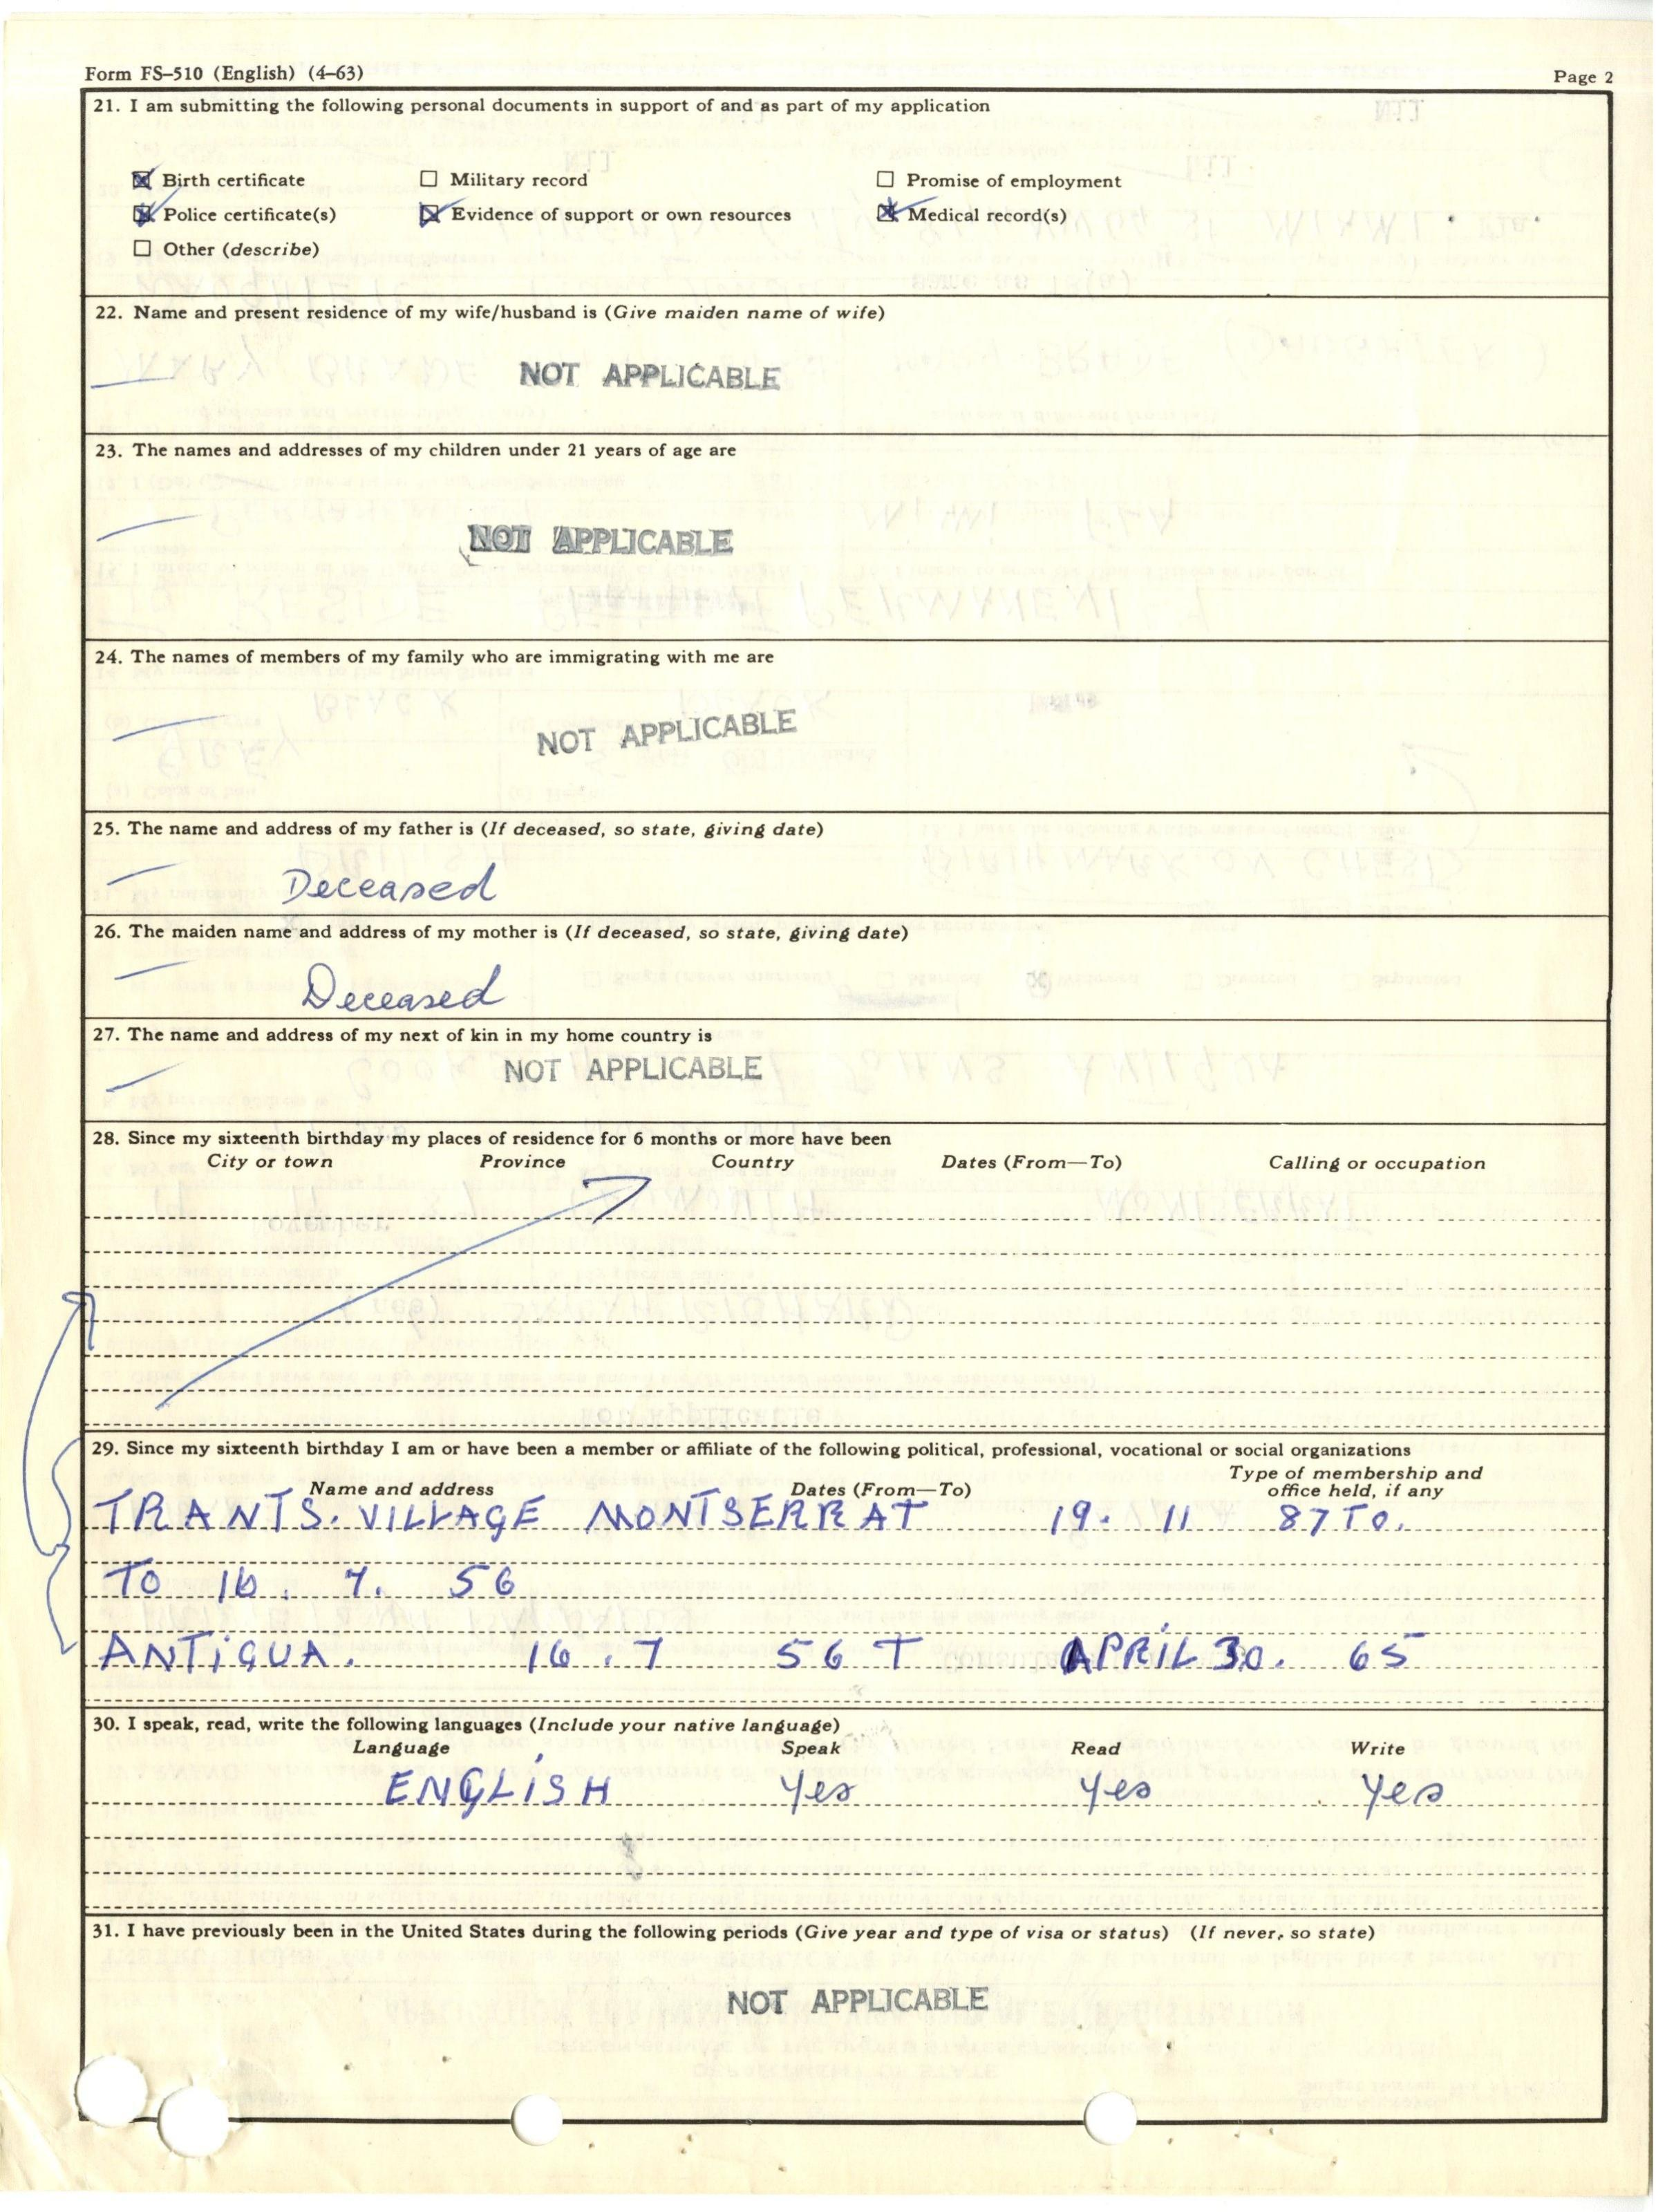 Form FS–510 (English) (4–63) Page 2
21. I am submitting the following personal documents in support of and as part of my application
☒ Birth certificate ☐ Military record ☐ Promise of employment
☒ Police certificate(s) ☒ Evidence of support or own resources ☒ Medical record(s)
☐ Other (describe)
22. Name and present residence of my wife/husband is (Give maiden name of wife)
NOT APPLICABLE
23. The names and addresses of my children under 21 years of age are
NOT APPLICABLE
24. The names of members of my family who are immigrating with me are
NOT APPLICABLE
25. The name and address of my father is (If deceased, so state, giving date)
Deceased
26. The maiden name and address of my mother is (If deceased, so state, giving date)
Deceased
27. The name and address of my next of kin in my home country is
NOT APPLICABLE
28. Since my sixteenth birthday my places of residence for 6 months or more have been
City or town Province Country Dates (From—To) Calling or occupation
29. Since my sixteenth birthday I am or have been a member or affiliate of the following political, professional, vocational or social organizations
Name and address Dates (From—To) Type of membership and office held, if any
TRANTS. VILLAGE MONTSERRAT 19. 11 87 TO.
TO 16. 7. 56
ANTIGUA. 16. 7 56 T APRIL 30. 65
30. I speak, read, write the following languages (Include your native language)
Language Speak Read Write
ENGLISH Yes Yes Yes
31. I have previously been in the United States during the following periods (Give year and type of visa or status) (If never, so state)
NOT APPLICABLE